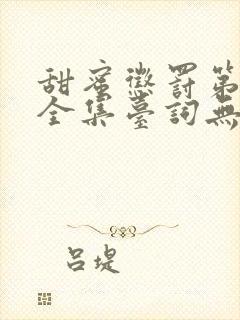 甜蜜懲罰第
全集臺詞無
呂堤